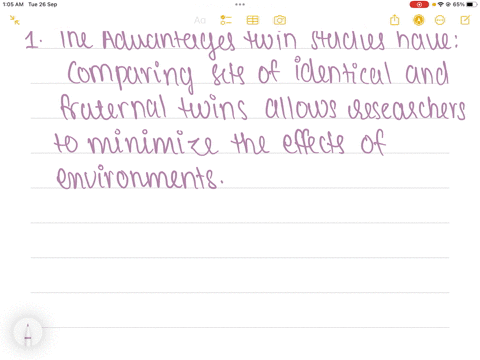 1:05 AM Tue 26 Sep
65%
Aa
1. The Advantages twin studies have:
Comparing sets of identical and
fraternal twins allows researchers
to minimize the effects of
environments.